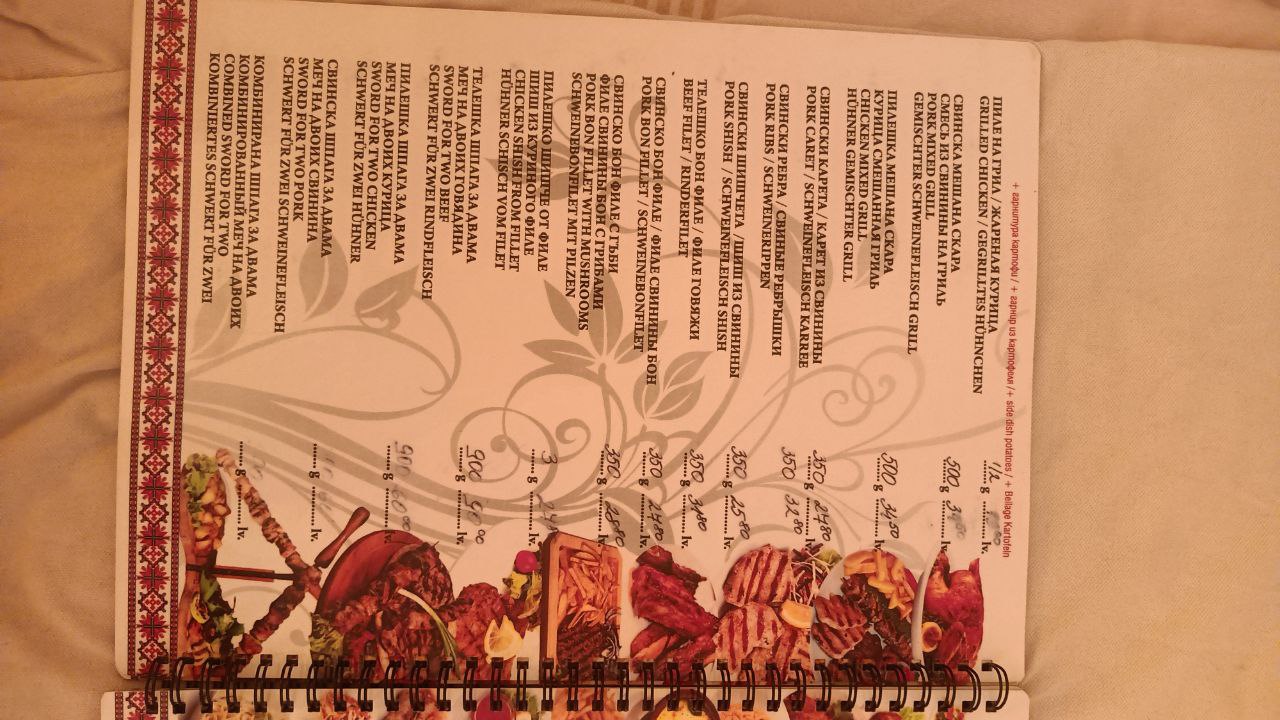 + гарнитура картофи / + гарнир из картофеля / + side dish potatoes / + Beilage Kartofeln
ПИЛЕ НА ГРИЛ / ЖАРЕНАЯ КУРИЦА 1/2
GRILLED CHICKEN / GEGRILLTES HÜHNCHEN ........ g ............ lv.
СВИНСКА МЕШАНА СКАРА
СМЕСЬ ИЗ СВИНИНЫ НА ГРИЛЬ 500 g lv.
PORK MIXED GRILL
GEMISCHTER SCHWEINEFLEISCH GRILL
ПИЛЕШКА МЕШАНА СКАРА
КУРИЦА СМЕШАННАЯ ГРИЛЬ 500 g 34 50 lv.
CHICKEN MIXED GRILL
HÜHNER GEMISCHTER GRILL
СВИНСКИ КАРЕТА / КАРЕТ ИЗ СВИНИНЫ 350 27 80
PORK CARET / SCHWEINEFLEISCH KARREE ........ g ............ lv.
СВИНСКИ РЕБРА / СВИНЫЕ РЕБРЫШКИ 350 32 80
PORK RIBS / SCHWEINERIPPEN
СВИНСКИ ШИШЧЕТА /ШИШ ИЗ СВИНИНЫ 350 25 80
PORK SHISH / SCHWEINEFLEISCH SHISH ........ g ............ lv.
ТЕЛЕШКО БОН ФИЛЕ / ФИЛЕ ГОВЯЖИ 350 31 80
BEEF FILET / RINDERFILET ........ g ............ lv.
СВИНСКО БОН ФИЛЕ / ФИЛЕ СВИНИНЫ БОН 350 27 80
PORK BON FILLET / SCHWEINEBONFILET ........ g ............ lv.
СВИНСКО БОН ФИЛЕ С ГЪБИ 350 28 80
ФИЛЕ СВИНИНЫ БОН С ГРИБАМИ ........ g ............ lv.
PORK BON FILLET WITH MUSHROOMS
SCHWEINEBONFILET MIT PILZEN
ПИЛЕШКО ШИШЧЕ ОТ ФИЛЕ 3
ШИШ ИЗ КУРИНОГО ФИЛЕ ........ g ............ lv.
CHICKEN SHISH FROM FILLET
HÜHNER SCHISCH VOM FILET
ТЕЛЕШКА ШПАГА ЗА ДВАМА 900 90 00
МЕЧ НА ДВОИХ ГОВЯДИНА ........ g ............ lv.
SWORD FOR TWO BEEF
SCHWERT FÜR ZWEI RINDFLEISCH
ПИЛЕШКА ШПАГА ЗА ДВАМА 900 60 00
МЕЧ НА ДВОИХ КУРИЦА ........ g ............ lv.
SWORD FOR TWO CHICKEN
SCHWERT FÜR ZWEI HÜHNER
СВИНСКА ШПАГА ЗА ДВАМА
МЕЧ НА ДВОИХ СВИНИНА ........ g ............ lv.
SWORD FOR TWO PORK
SCHWERT FÜR ZWEI SCHWEINEFLEISCH
КОМБИНИРАНА ШПАГА ЗА ДВАМА
КОМБИНИРОВАННЫЙ МЕЧ НА ДВОИХ ........ g ............ lv.
COMBINED SWORD FOR TWO
KOMBINIERTES SCHWERT FÜR ZWEI